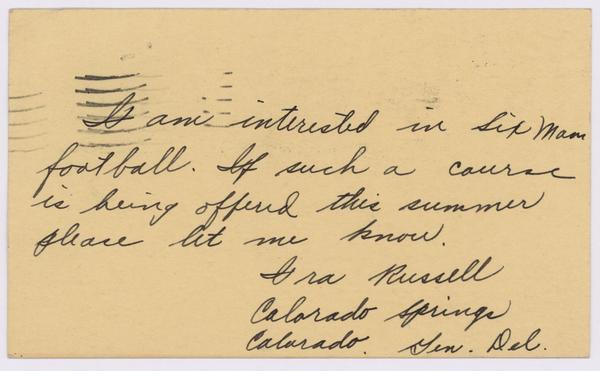 I am interested in Six Man
football. If such a course
is being offered this summer
please let me know.
Ira Russell
Colorado Springs
Colorado. Gen. Del.